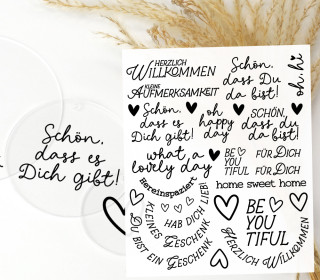 Schön,
dass es
Dich gibt!
HERZLICH
WILLKOMMEN
KLEINE
AUFMERKSAMKEIT
Schön,
dass Du
da bist!
oh, hi
Schön,
dass es
Dich gibt!
oh
happy
day
SCHÖN,
dass du
da bist!
what a
lovely day
BE
YOU
TIFUL
FÜR DICH
FÜR DICH
Hereinspaziert
home sweet home
KLEINES GESCHENK
HAB DICH LIEB!
DU BIST EIN GESCHENK
BE
YOU
TIFUL
HERZLICH WILLKOMMEN